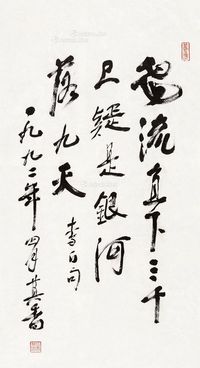 飛流直下三千
尺疑是銀河
落九天 李白句
一九九二年四月